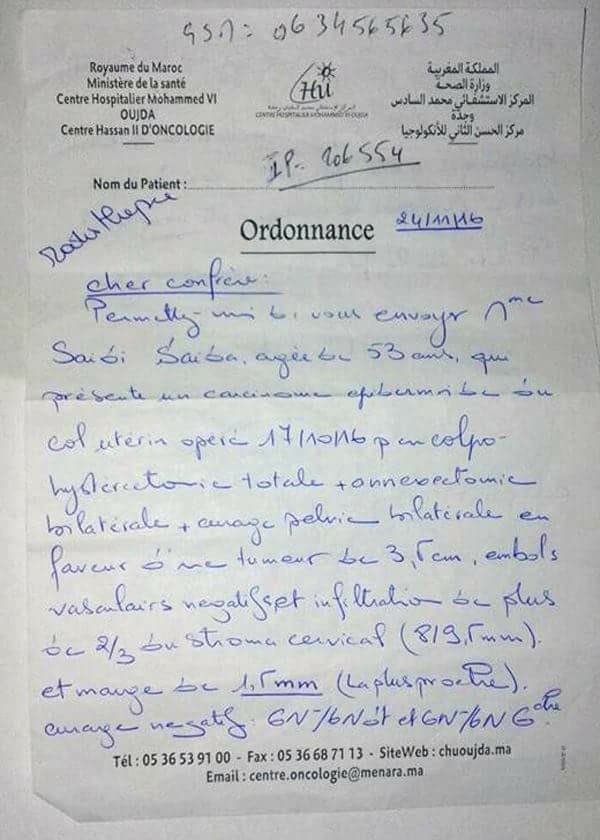 GSM: 0634565635
Royaume du Maroc
Ministère de la santé
Centre Hospitalier Mohammed VI
OUJDA
Centre Hassan II D'ONCOLOGIE
Hu
CENTRE HOSPITALIER MOHAMMED VI OUJDA
المملكة المغربية
وزارة الصحة
المركز الاستشفائي محمد السادس
وجدة
مركز الحسن الثاني للأنكولوجيا
IP- 206554
Nom du Patient :
Ordonnance
24/11/16
cher confrère:
Permettez-moi de vous envoyer Mme
Saidi Saida, agée de 53 ans, qui
présente un carcinome épidermoide du
col utérin opéré 17/10/16 par colpo-
hysterectomie totale + annexectomie
bilatérale + curage pelvic bilatérale en
faveur d'une tumeur de 3,5cm, embols
vasculairs negatifs et infiltration de plus
de 2/3 du stroma cervical (8/9,5mm).
et marge de 1,5mm (la plus proche).
curage negatif: 6N-/6N dt et 6N-/6N Gche.
Tél : 05 36 53 91 00 - Fax : 05 36 68 71 13 - SiteWeb : chuoujda.ma
Email : centre.oncologie@menara.ma